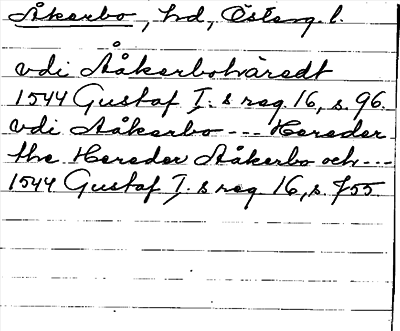 Åkerbo, hd, Österg. l.
vdi Aåkerbohäredt
1544 Gustaf I. s reg. 16, s. 96.
vdi Aåkerbo --- Hereder
the Hereder Aåkerbo och ---
1544 Gustaf I. s reg. 16, s. 755